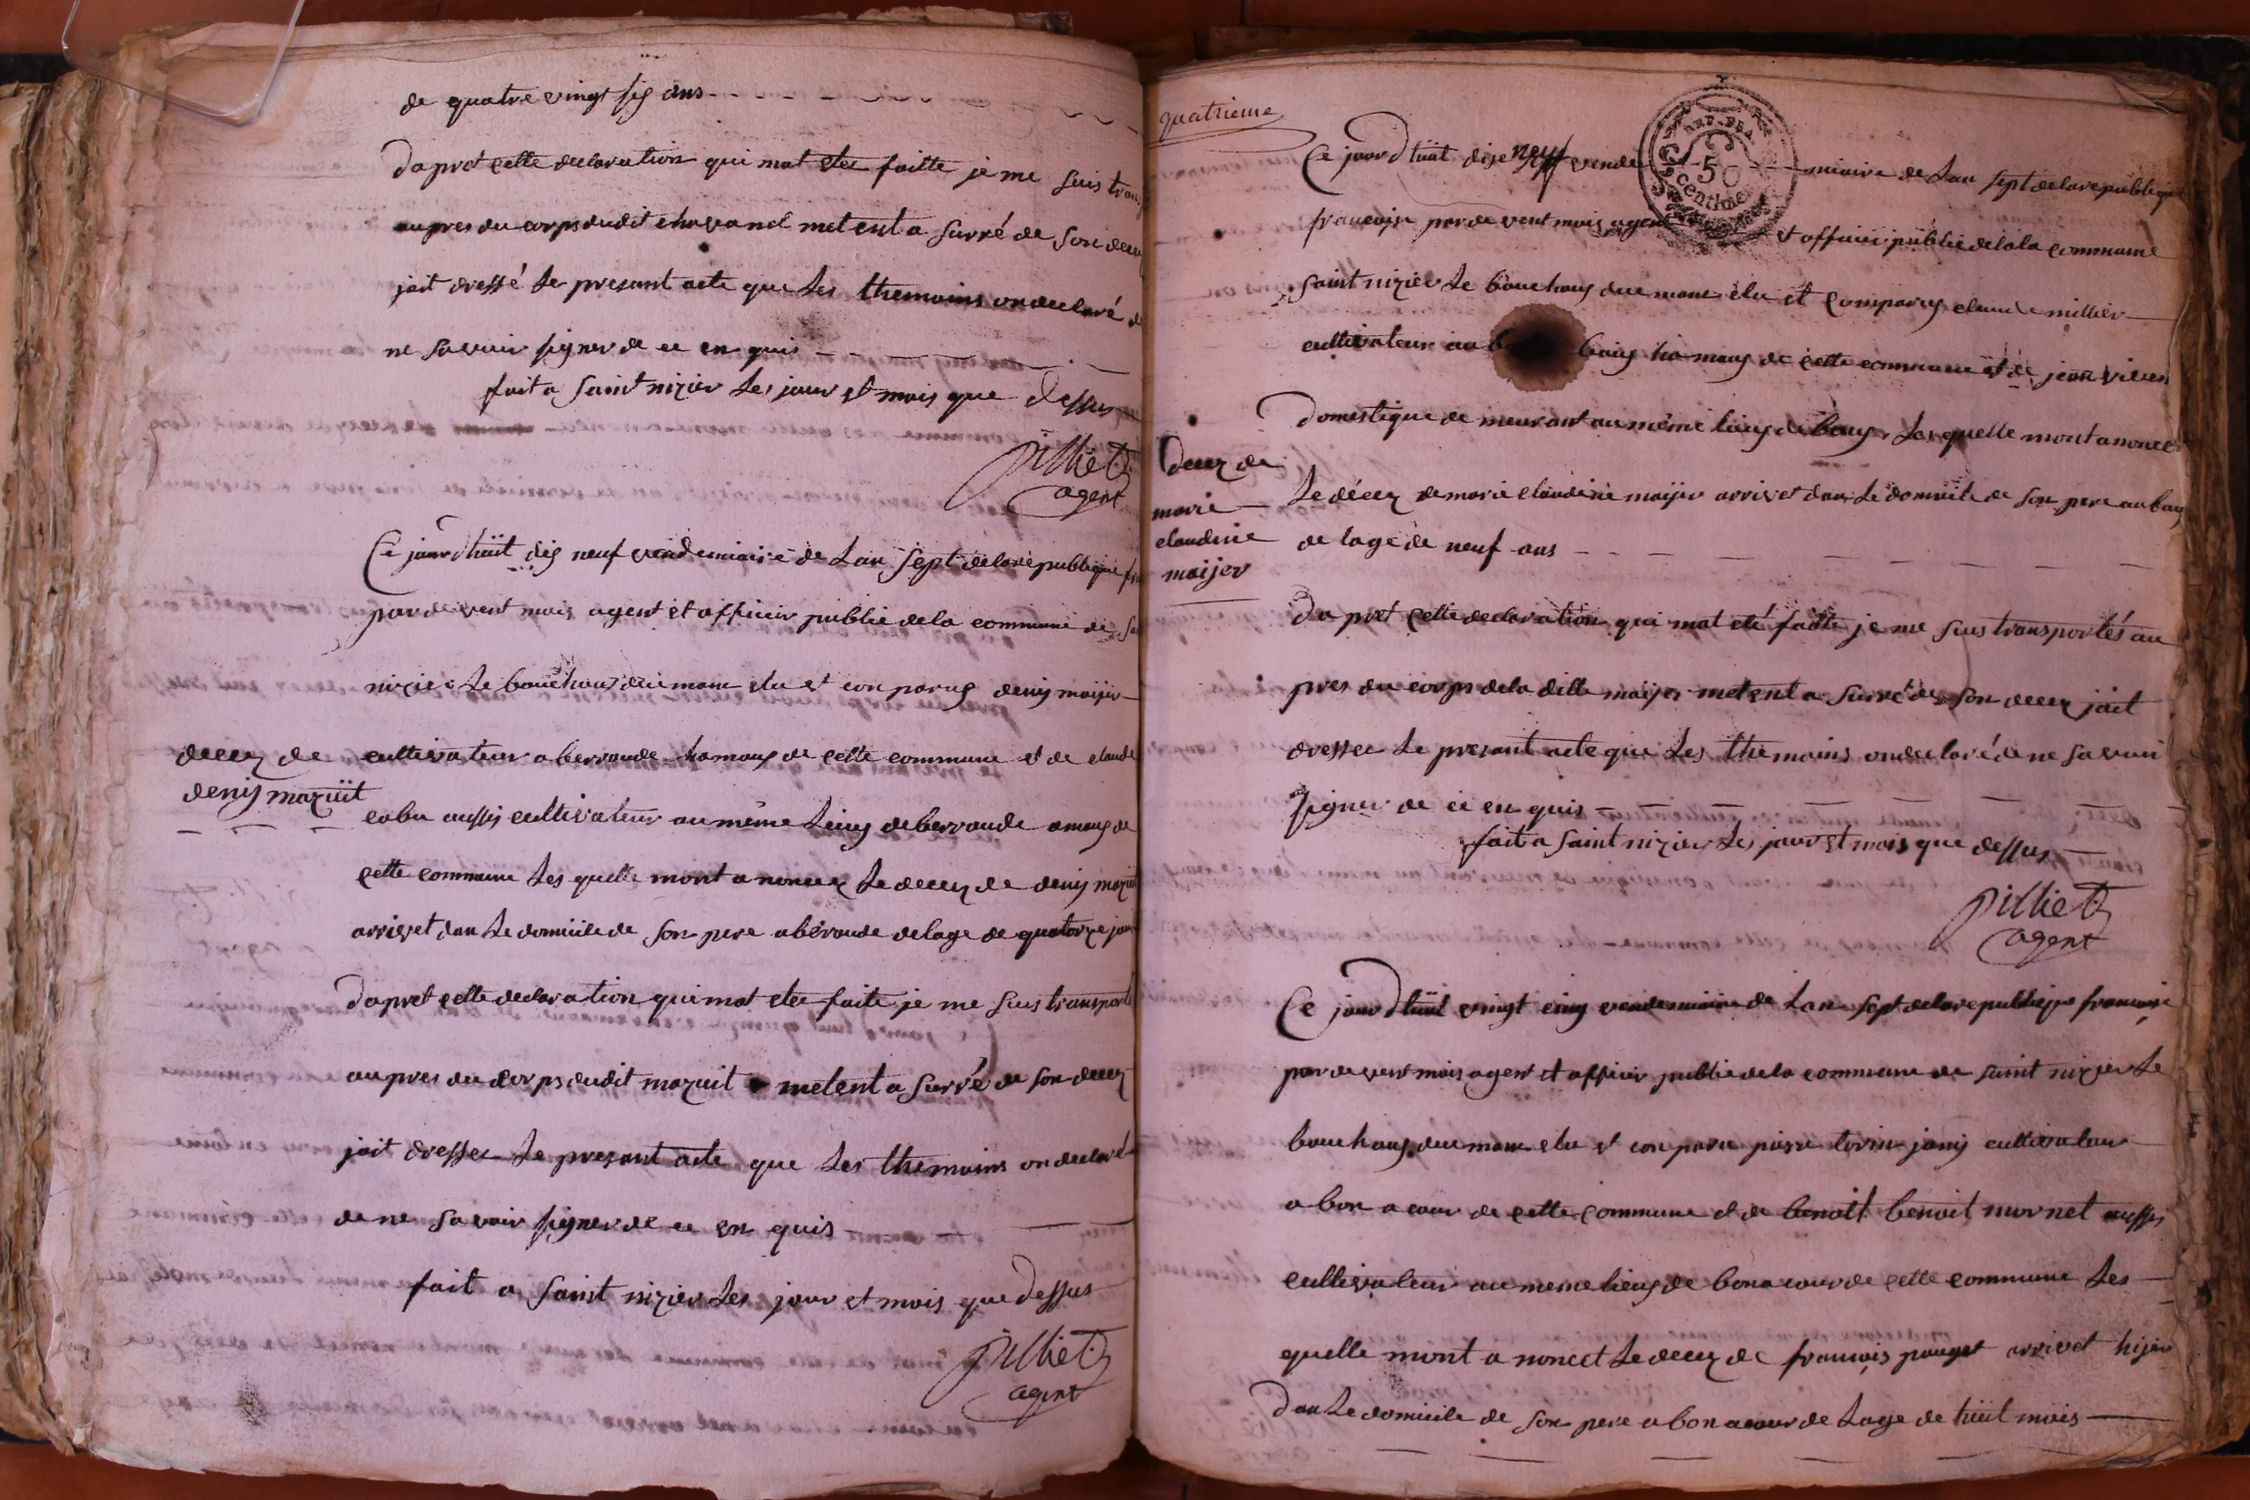 de quatre vingt sis ans
dapret cette declaration qui mat etee faitte je me suis trans
aupres du corps dudit chavanel metent a surré de son decez
jait dressé le presant acte que les themoins on declaré de
ne savoir signer de ce en quis
fait a saint nizier les jour et mois que dessus
pilliet
agent
Ce jourdhüit dis neuf vendemiaire de lan sept de la republique
par devent mois agent et officier public de la commune de
nizier le bouchous du mans elu et conparus denis maijer
cultivateur a berroude hamaus de cette commune et de claude
decez de
denis mazüit
aussis cultivateur au même lieus de berroude amaus de
cette commune les quelle mont a noncez le decez de denis mazuit
arrivet dan le domicile de son pere a béroude de lage de quatorze jour
dapret cette declaration qui mat etee faite je me suis transporté
au pres du corps dudit mazuit metent a surré de son decez
jait dressee le presant acte que les themoins on declaré
de ne savoir signer de ce en quis
fait a saint nizier les jour et mois que dessus
pilliet
agent
quatrieme
REP. FRA
50
centime
Ce jourdhüit dise neuf vende miaire de lan sept de la republique
francoise par de vent mois agent et officier public de la la commune
saint nizier le bouchous du mans elu et comparus claude millier
cultivateur au baus hamaus de cette commune et de jean
domestique de meurant au même lieus de baus les quelle mont anoncez
decez de
marie
claudine
maijer
le décez de marie claudine maijer arrivet dan le domicile de son pere au baus
de lage de neuf ans
dapret cette declaration qui mat eté faitte je me suis transportés au
pres du corps de la ditte maijer metent a surré de son decez jait
dressee le presant acte que les themoins on declaré de ne savoir
signer de ce en quis
fait a saint nizier les jour et mois que dessus
pilliet
agent
Ce jourdhüit vingt cinq vendemiaire de lan sept de la republique francoise
par devent mois agent et officier public de la commune de saint nizier le
bouchous du mans elu et conparu piere janis cultivateur
a bon a cour de cette commune et de benoit benoit mornet aussis
cultivateur au meme lieus de bon a cour de cette commune les
quelle mont a noncet le decez de francois pauget arrivet hijer
dan le domicile de son pere a bon a cour de lage de hüit mois